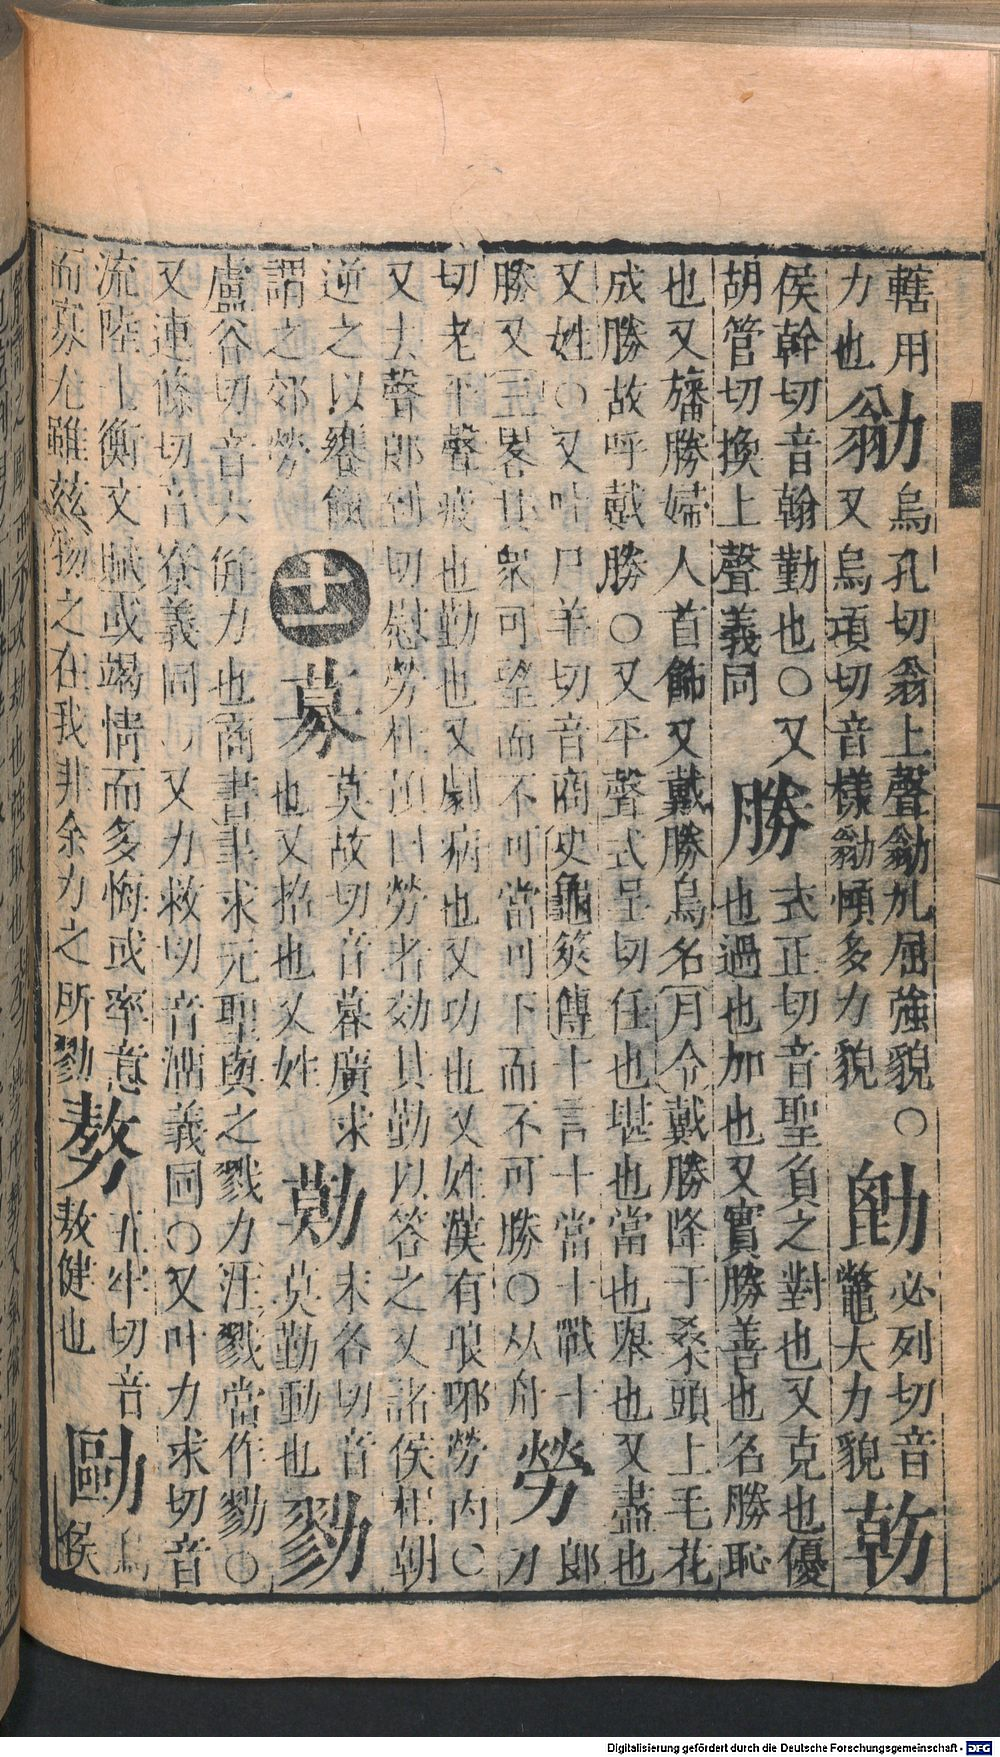 轄用力也勜烏孔切翁上聲勜劜屈強貌○又烏項切音樣勜㑯多力貌必列切音鼈大力貌
侯幹切音翰勤也○又胡管切換上聲義同勝式正切音聖負之對也又克也優也過也加也又實勝善也名勝恥
也又旛勝婦人首飾又戴勝鳥名月令戴勝降于桑頭上毛花成勝故呼戴勝○又平聲式呈切任也堪也當也舉也又盡也
又姓○又叶尸羊切音商史龜筴傳十言十當十戰十勝又畧其眾可望而不可當可下而不可勝○从舟勞郎刀
切老平聲疲也勤也又劇病也又功也又姓漢有琅邪勞丙○又去聲郎到切慰勞杜預曰勞者効其勤以答之又諸侯相朝
逆之以饔餼謂之郊勞十一募莫故切音暮廣求也又招也又姓末各切音莫勤動也勠
盧谷切音六併力也商書聿求元聖與之戮力注戮當作勠○又連條切音寮義同○又力救切音溜義同○又叶力求切音
流陸士衡文賦或竭情而多悔或率意而寡尤雖茲物之在我非余力之所勠𠢕五牢切音敖健也烏侯
Digitalisierung gefördert durch die Deutsche Forschungsgemeinschaft - DFG